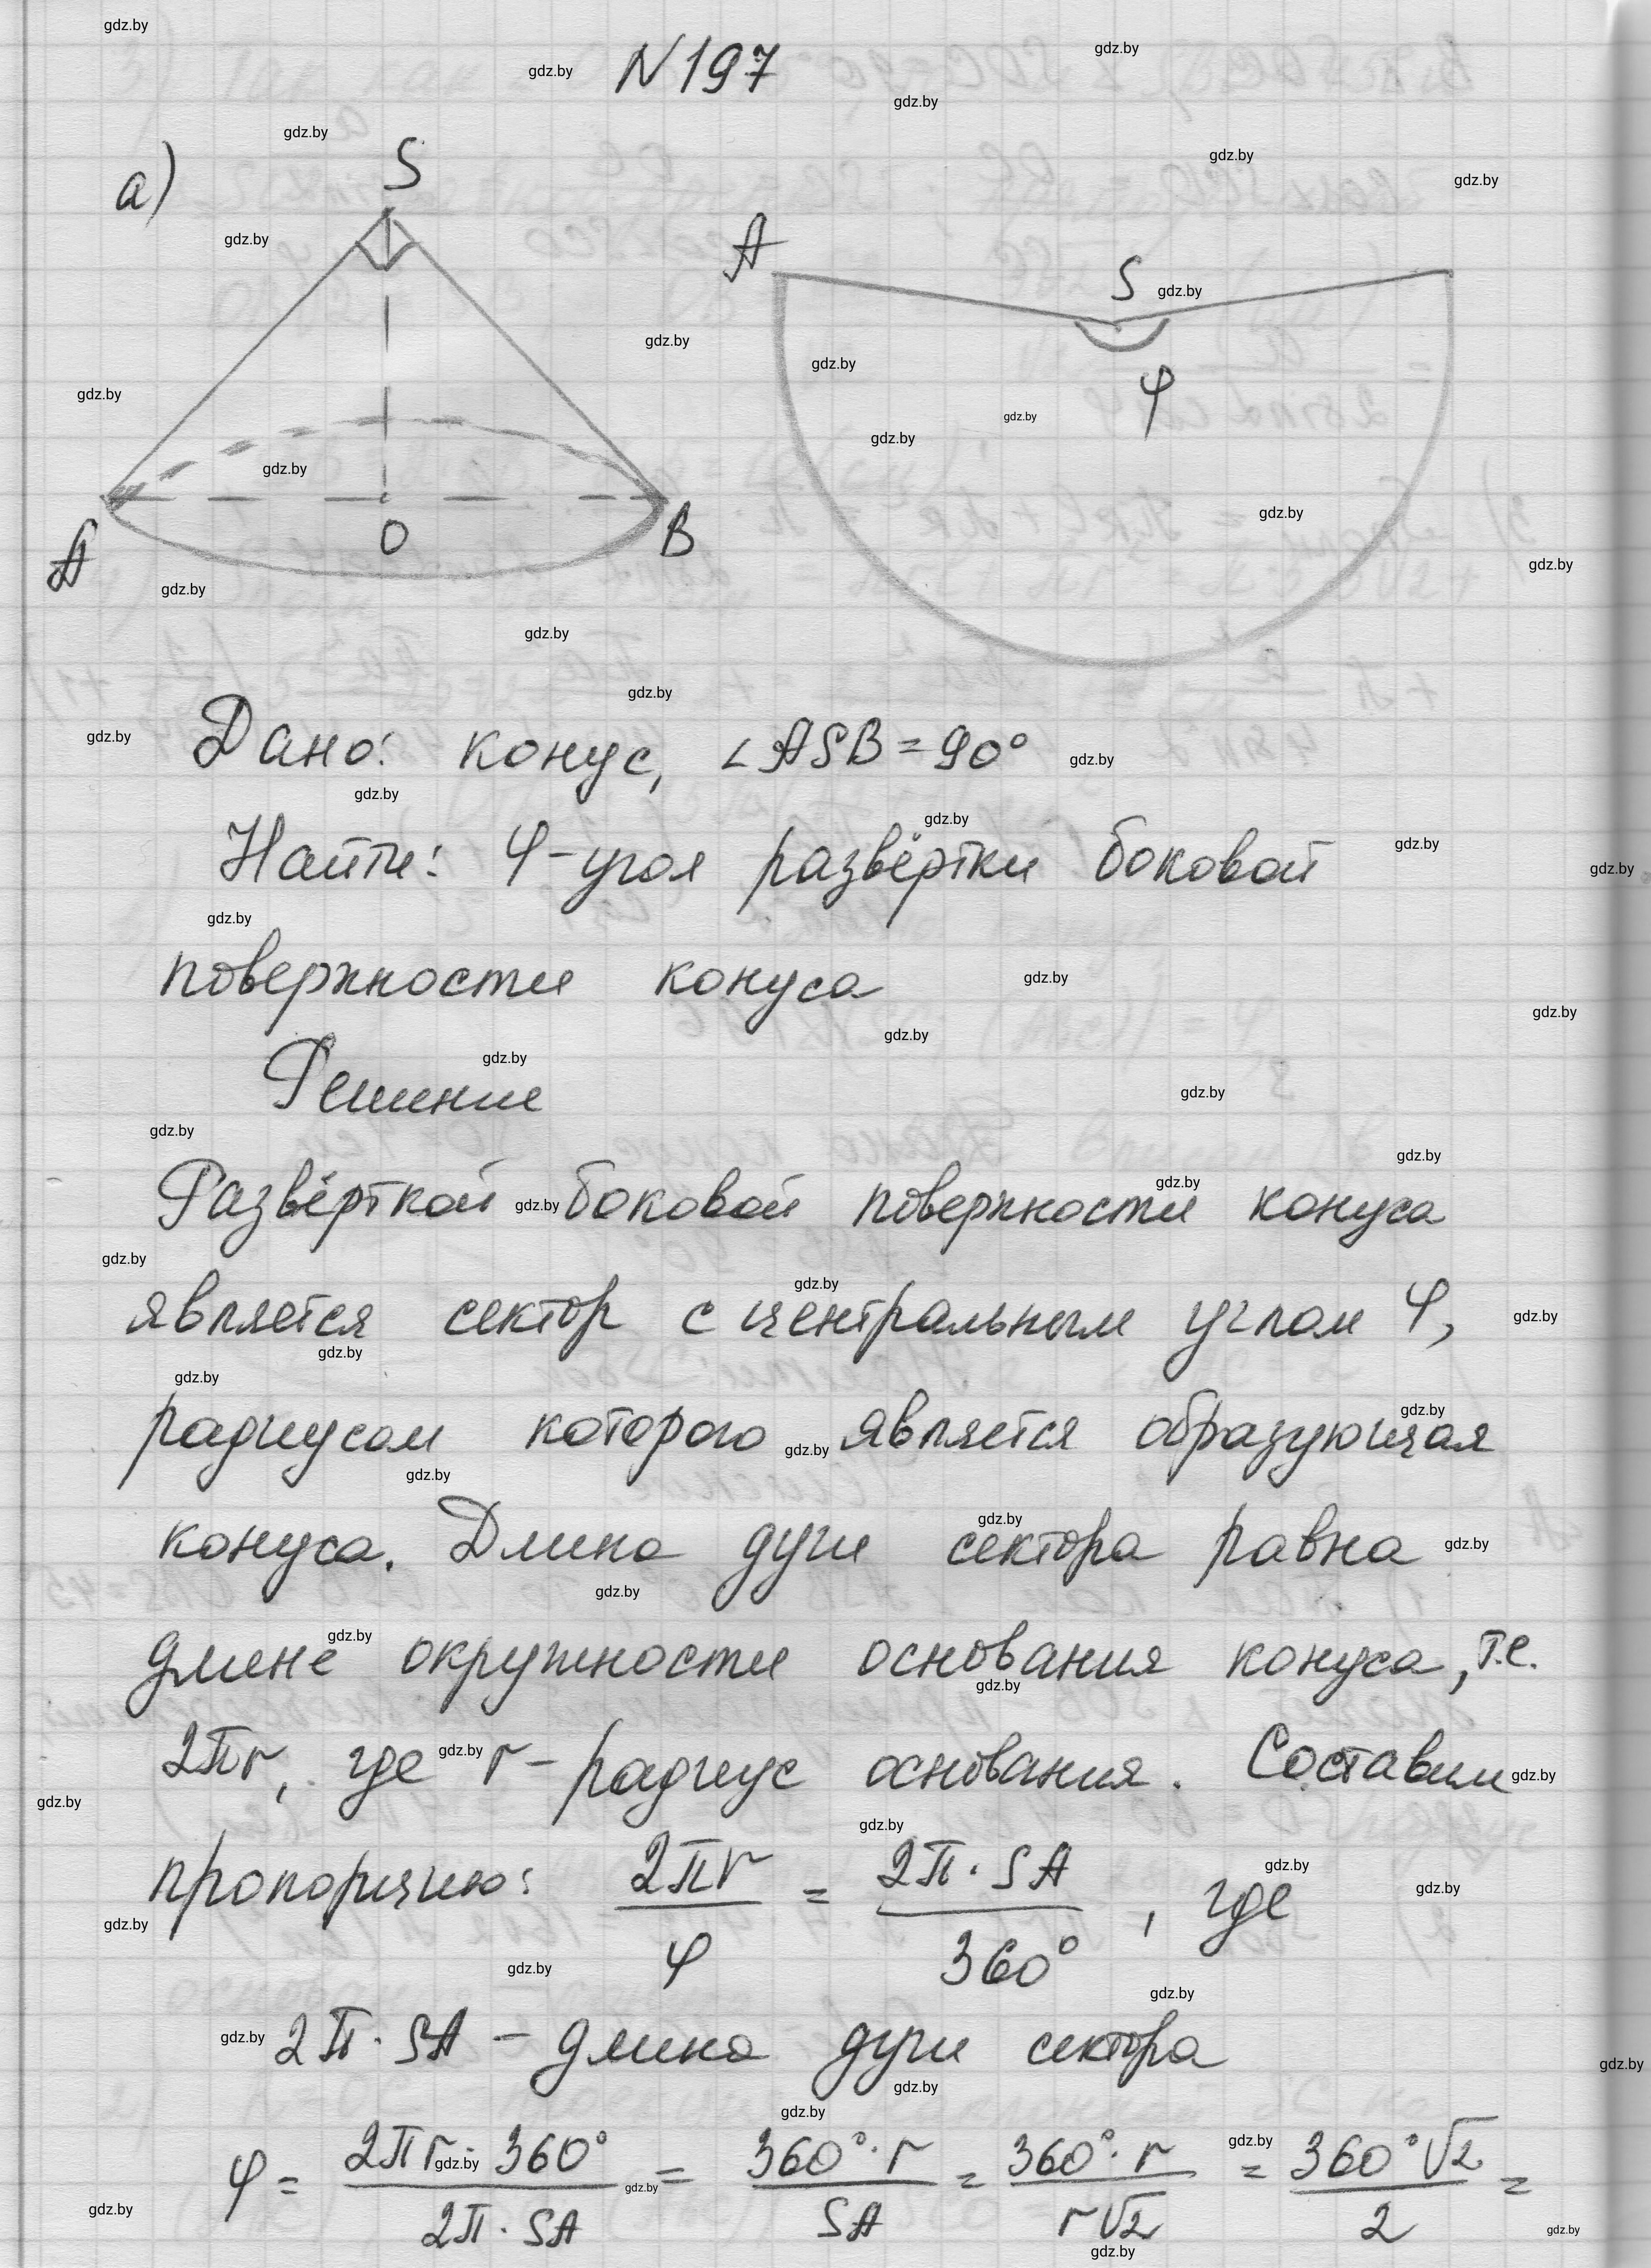 N 197
а)
S
A
O
B
A
S
φ
Дано: конус, ∠ASB = 90°
Найти: φ - угол развёртки боковой
поверхности конуса
Решение
Развёрткой боковой поверхности конуса
является сектор с центральным углом φ,
радиусом которого является образующая
конуса. Длина дуги сектора равна
длине окружности основания конуса, т.е.
2πr, где r - радиус основания. Составим
пропорцию: 2πr/φ = 2π · SA/360°, где
2π · SA - длина дуги сектора
φ = 2πr · 360°/2π · SA = 360° · r/SA = 360° · r/r√2 = 360°√2/2 =
gdz.by